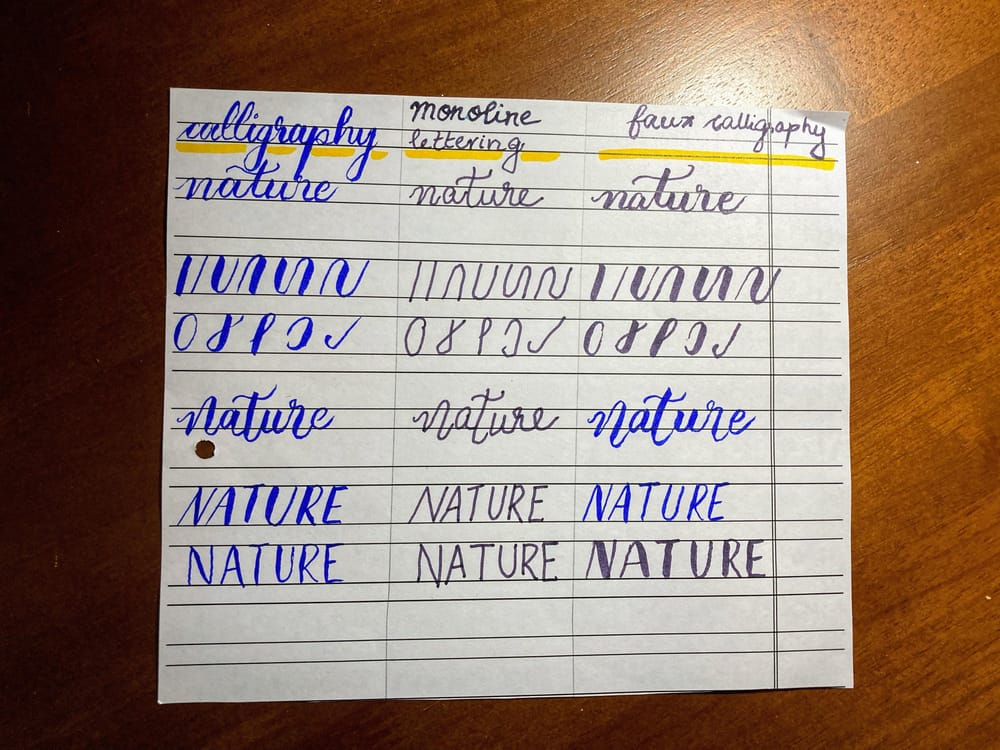 calligraphy monoline lettering faux calligraphy
nature nature nature
nature nature nature
NATURE NATURE NATURE
NATURE NATURE NATURE